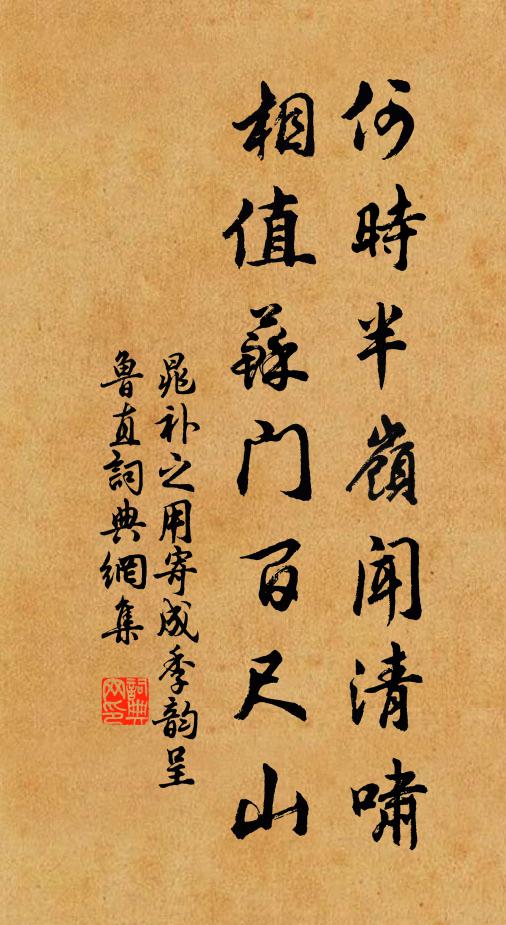 何時半嶺聞清嘯
相值蘇門百尺山
晁补之用寄成季韵呈
魯直詞典網集
詞典網印